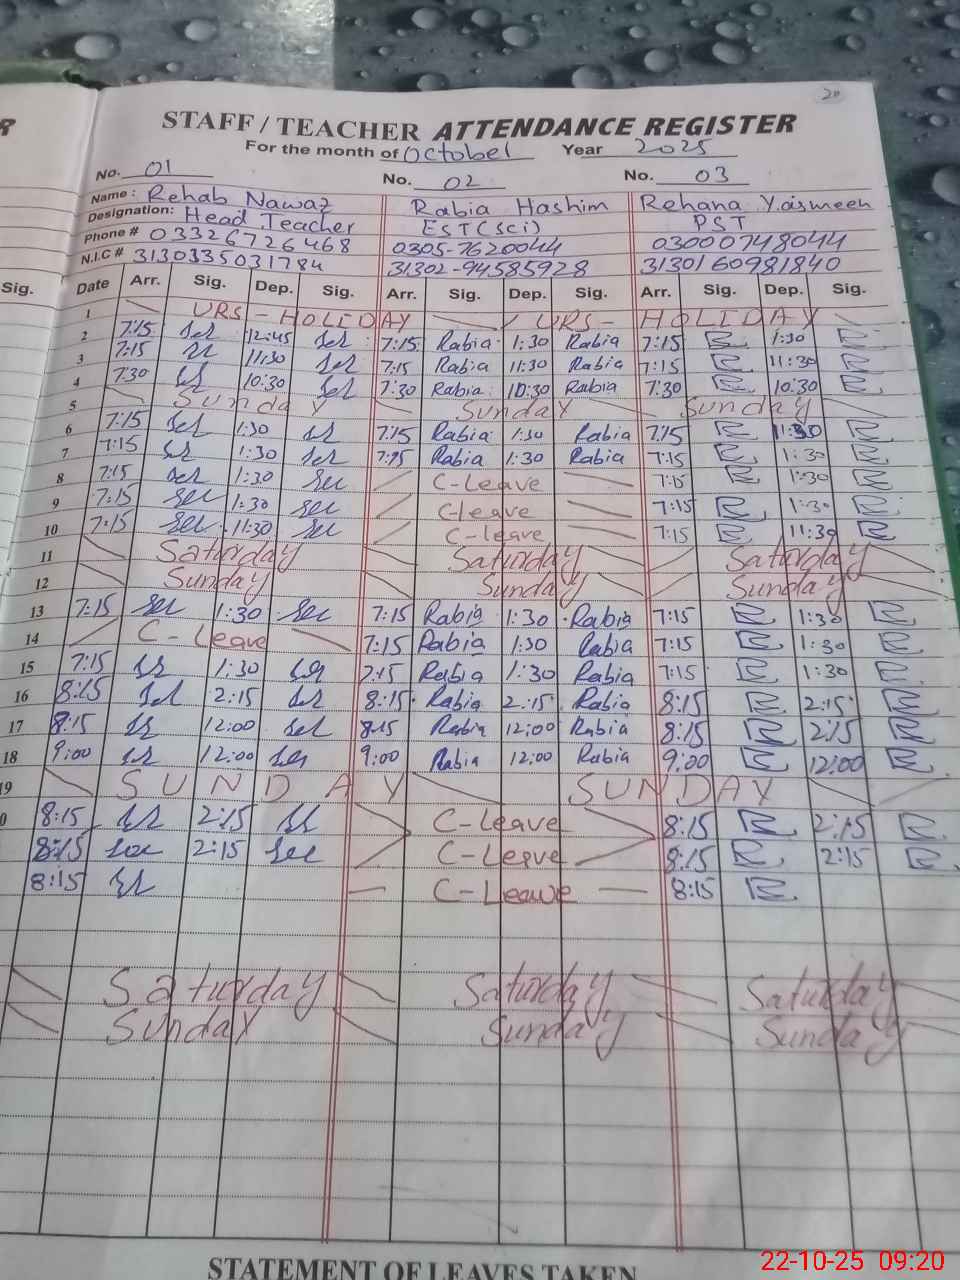 20
R
STAFF / TEACHER ATTENDANCE REGISTER
For the month of October Year 2025
No. 01 No. 02 No. 03
Name: Rehab Nawaz Rabia Hashim Rehana Yasmeen
Designation: Head Teacher EST(Sci) PST
Phone # 03326726468 0305-7620044 03000748044
N.I.C # 3130335031784 31302-94585928 3130160981840
Sig. Date Arr. Sig. Dep. Sig. Arr. Sig. Dep. Sig. Arr. Sig. Dep. Sig.
1 URS - HOLIDAY URS - HOLIDAY
2 7:15 12:45 7:15 Rabia 1:30 Rabia 7:15 1:30
3 7:15 11:30 7:15 Rabia 11:30 Rabia 7:15 11:30
4 7:30 10:30 7:30 Rabia 10:30 Rabia 7:30 10:30
5 Sunday Sunday Sunday
6 7:15 1:30 7:15 Rabia 1:30 Rabia 7:15
7 7:15 1:30 7:15 Rabia 1:30 Rabia 7:15 1:30
8 7:15 1:30 C-Leave 7:15 1:30
9 7:15 1:30 C-leave 7:15 1:30
10 7:15 11:30 C-leave 7:15 11:30
11 Saturday Saturday Saturday
12 Sunday Sunday Sunday
13 7:15 1:30 7:15 Rabia 1:30 Rabia 7:15 1:30
14 C-Leave 7:15 Rabia 1:30 Rabia 7:15 1:30
15 7:15 1:30 7:15 Rabia 1:30 Rabia 7:15 1:30
16 8:15 2:15 8:15 Rabia 2:15 Rabia 8:15 2:15
17 8:15 12:00 8:15 Rabia 12:00 Rabia 8:15 2:15
18 9:00 12:00 9:00 Rabia 12:00 Rabia 9:00 12:00
19 SUNDAY SUNDAY
0 8:15 2:15 C-Leave 8:15 2:15
8:15 2:15 C-Leave 8:15 2:15
8:15 C-Leave 8:15
Saturday Saturday Saturday
Sunday Sunday Sunday
STATEMENT OF LEAVES TAKEN
22-10-25 09:20